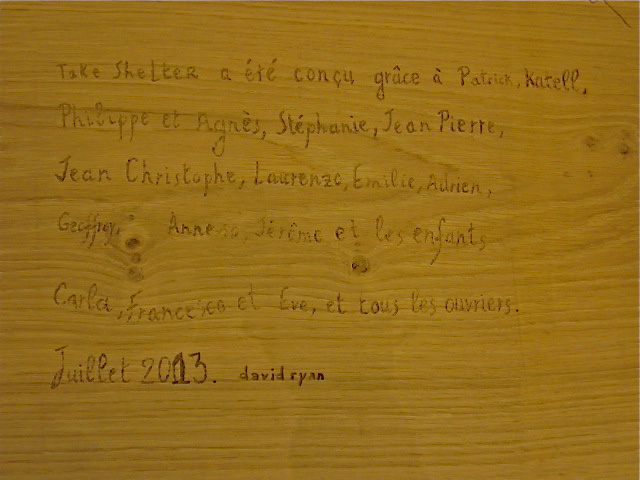 Take Shelter a été conçu grâce à Patrick, Katell,
Philippe et Agnès, Stéphanie, Jean Pierre,
Jean Christophe, Laurenzo, Emilie, Adrien,
Geoffroy, Jérôme et les enfants
Carla, Francesco et Eve, et tous les ouvriers.
Juillet 2013. david ryan